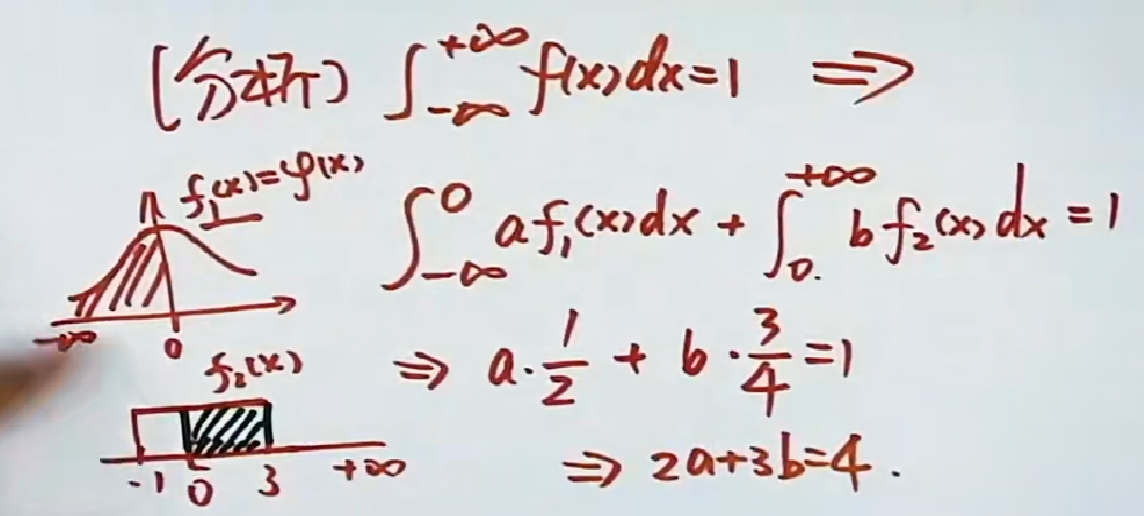 (分析) ∫_{-∞}^{+∞} f(x)dx=1 ⇒
f₁(x)=φ(x)
∫_{-∞}^{0} a f₁(x)dx + ∫_{0}^{+∞} b f₂(x)dx = 1
-∞ 0
f₂(x)
⇒ a·1/2 + b·3/4 =1
-1 0 3 +∞
⇒ 2a+3b=4.